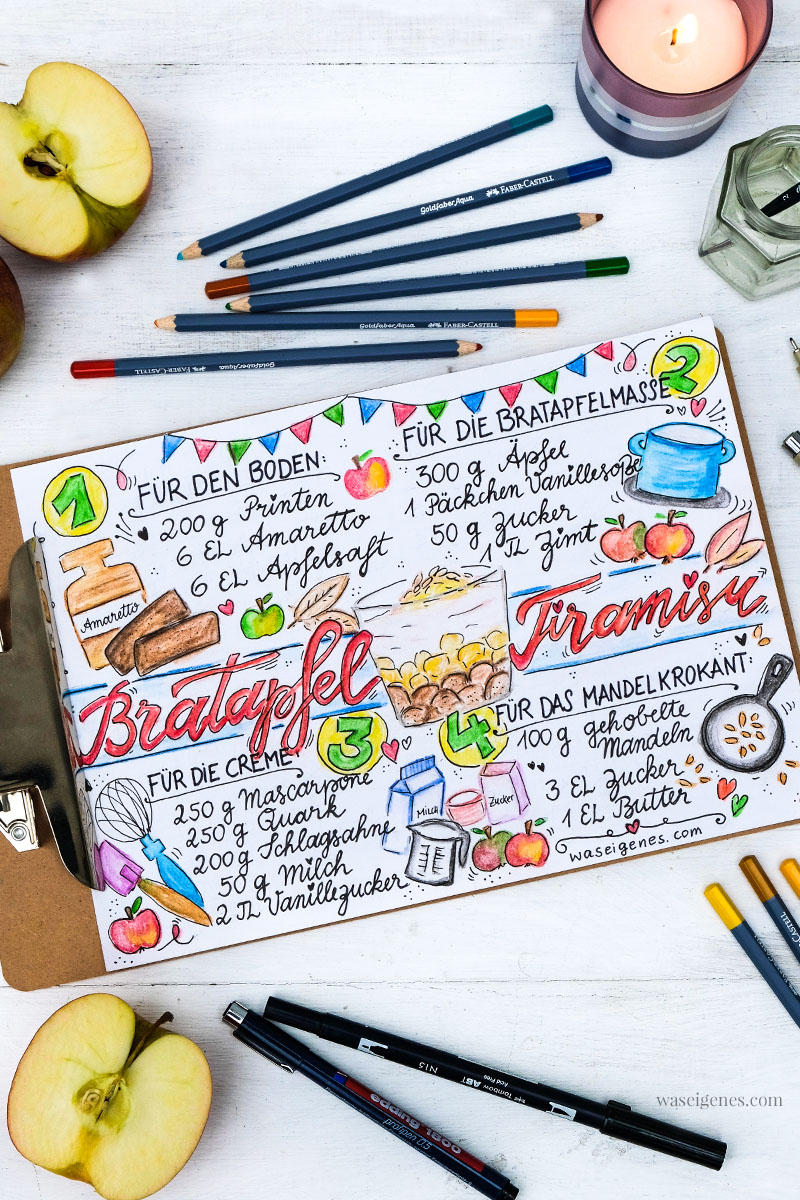 Goldfaber Aqua FABER-CASTELL
Goldfaber Aqua FABER-CASTELL
FABER-CASTELL Goldfaber Aqua
1
FÜR DEN BODEN:
200 g Printen
6 EL Amaretto
6 EL Apfelsaft
Amaretto
2
FÜR DIE BRATAPFELMASSE
300 g Äpfel
1 Päckchen Vanillesoße
50 g Zucker
1 TL Zimt
Bratapfel Tiramisu
3
FÜR DIE CREME
250 g Mascarpone
250 g Quark
200 g Schlagsahne
50 g Milch
2 TL Vanillezucker
Milch
Zucker
4
FÜR DAS MANDELKROKANT:
100 g gehobelte
Mandeln
3 EL Zucker
1 EL Butter
waseigenes.com
CASTELL
N15 Tombow ABT
Acid Free
edding 1800
profipen 0.5
waseigenes.com